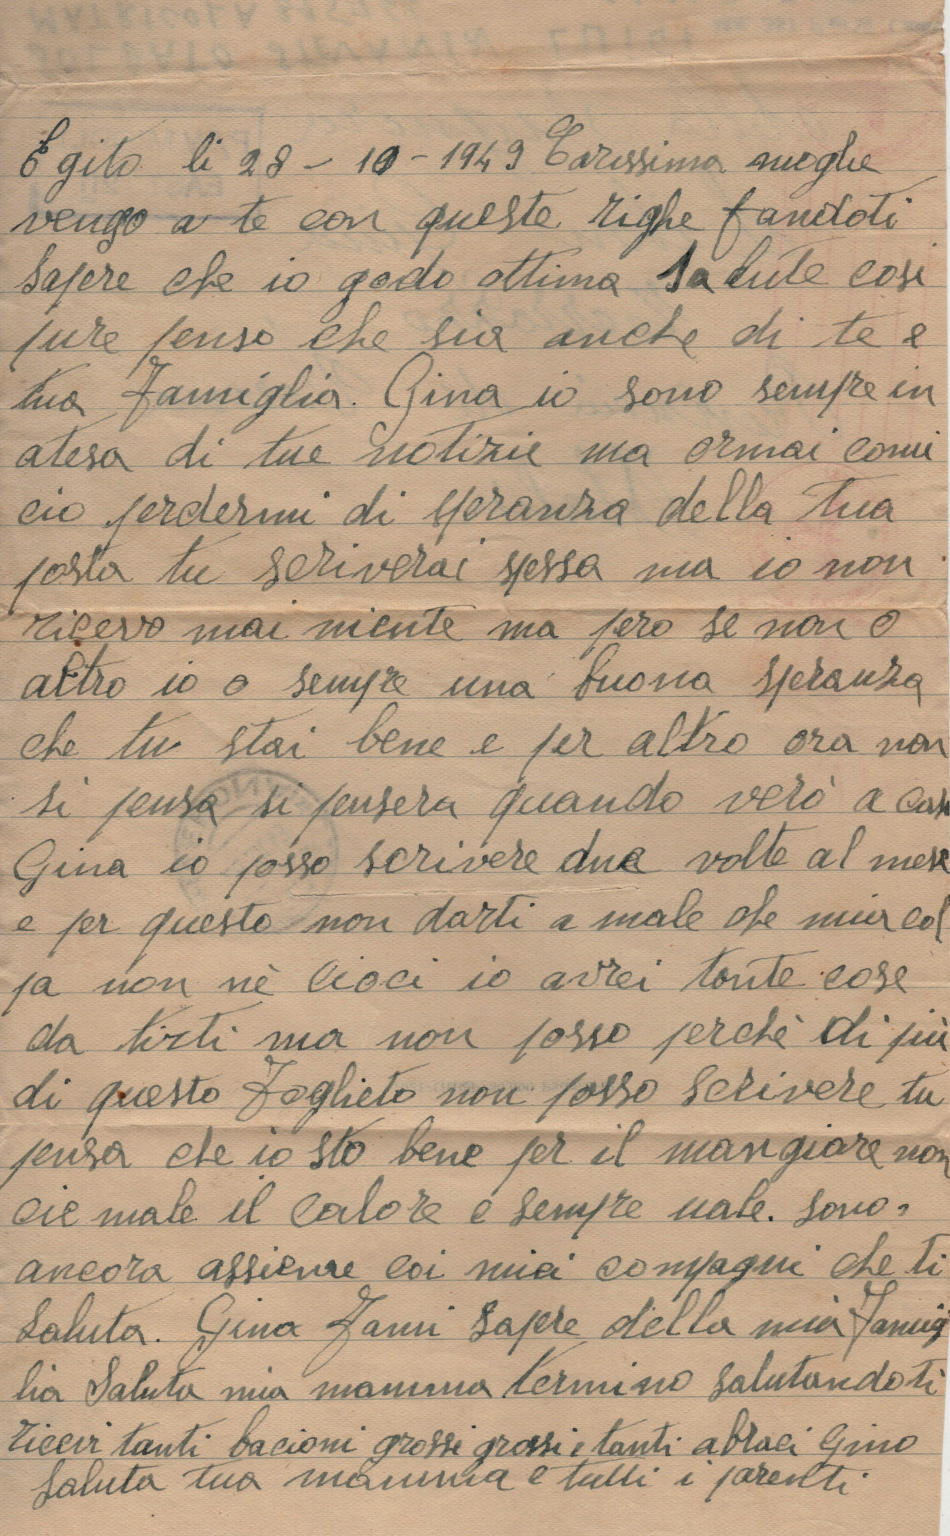 Egito li 28 - 10 - 1949 Carissima moglie
vengo a te con queste righe fandoti
sapre che io godo ottima salute cosi
pure penso che sia anche di te e
tua Famiglia. Gina io sono sempre in
atesa di tue notizie ma ormai comi
cio perdermi di speranza della tua
posta tu scriverai spessa ma io non
ricevo mai niente ma pero se non o
altro io o sempre una buona speranza
che tu stai bene e per altro ora non
si pensa si pensera quando verò a casa
Gina io posso scrivere due volte al mese
e per questo non darti a male che mia col
pa non nè cioci io avrei tante cose
da tirti ma non posso perchè di più
di questo Foglieto non posso scrivere tu
pensa che io sto bene per il mangiare non
cie male il calore e sempre uale. sono
ancora assieme coi miei compagni che ti
saluta. Gina Fami sapre della mia Famig
lia Saluta mia mamma termino salutandoti
ricevi tanti bacioni grossi grossi e tanti abraci Gino
saluta tua mamma e tutti i parenti